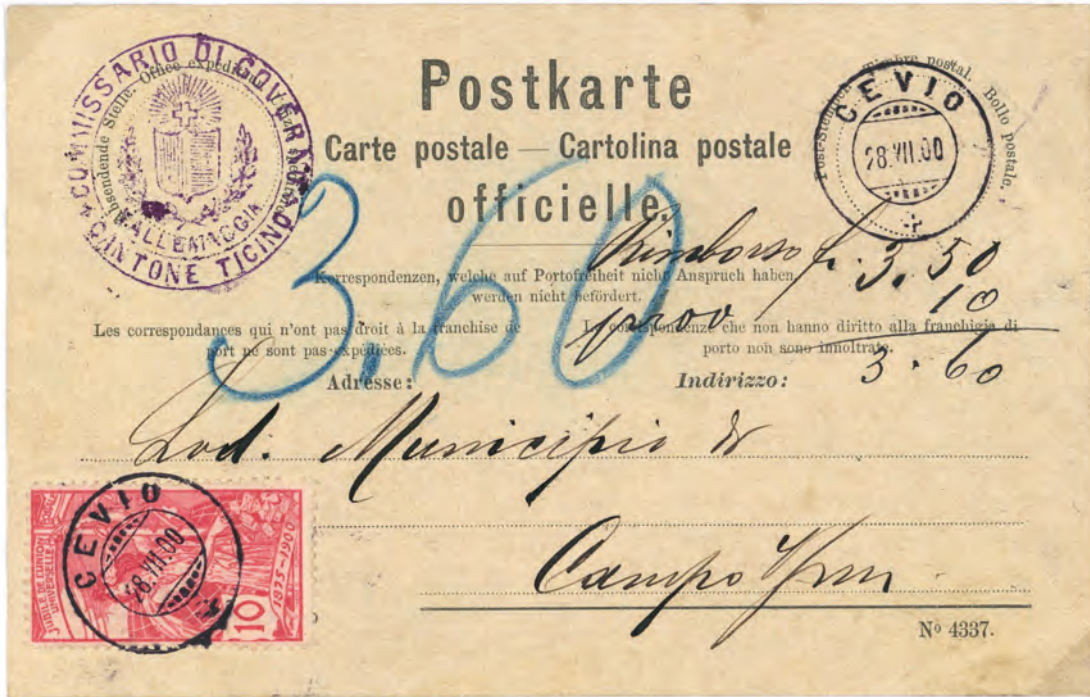 COMMISSARIO DI GOVERNO
VALLEMAGGIA
* CANTONE TICINO *
Absendende Stelle. Office expéditeur.
Postkarte
Carte postale — Cartolina postale
officielle.
Post-Stempel. Timbre postal. Bollo postale.
CEVIO
28.VII.00
3.60
Rimborso fr. 3.50
prov 10
3.60
Korrespondenzen, welche auf Portofreiheit nicht Anspruch haben,
werden nicht befördert.
Les correspondances qui n'ont pas droit à la franchise de
port ne sont pas expédiées.
Le corrispondenze che non hanno diritto alla franchigia di
porto non sono innoltrate.
Adresse:
Indirizzo:
Lod. Municipio di
Campo
CEVIO
28.VII.00
JUBILÉ DE L'UNION
UNIVERSELLE
1875-1900
10
Nº 4337.